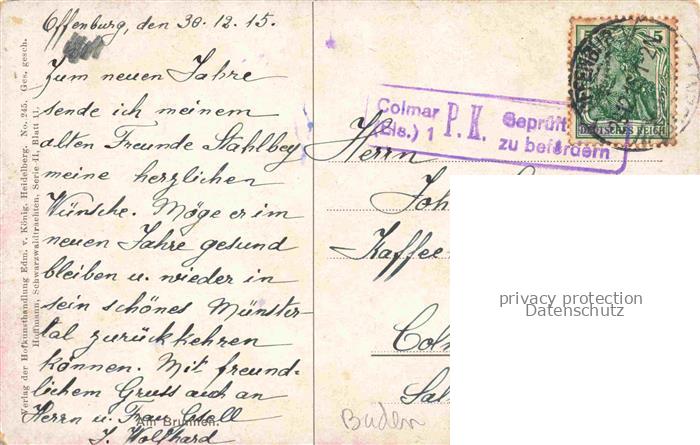 Offenburg, den 30.12.15.
Zum neuen Jahre
sende ich meinem
alten Freunde Stahlbey
meine herzlichen
Wünsche. Möge er im
neuen Jahre gesund
bleiben u. wieder in
sein schönes Münster-
tal zurückkehren
können. Mit freund-
lichem Gruss auch an
Herrn u. Frau
J. Wolfhard
Am Brunnen.
Verlag der Hofkunsthandlung Edm. v. König, Heidelberg. No. 245. Ges. gesch.
Hoffmann, Schwarzwaldtrachten, Serie II, Blatt 11.
Colmar P.K. Geprüft
(Els.) 1 zu befördern
5
DEUTSCHES REICH
Herrn
Joh
Kaffee
Col
Baden
privacy protection
Datenschutz